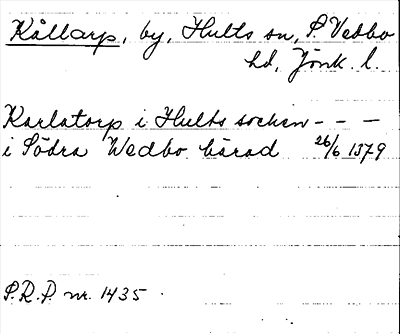 Kållarp, by, Hults sn, S. Vedbo
hd, Jönk. l.
Karlatorp i Hults socken - - -
i Södra Wedbo härad 26/6 1379
S.R.P. nr. 1435.